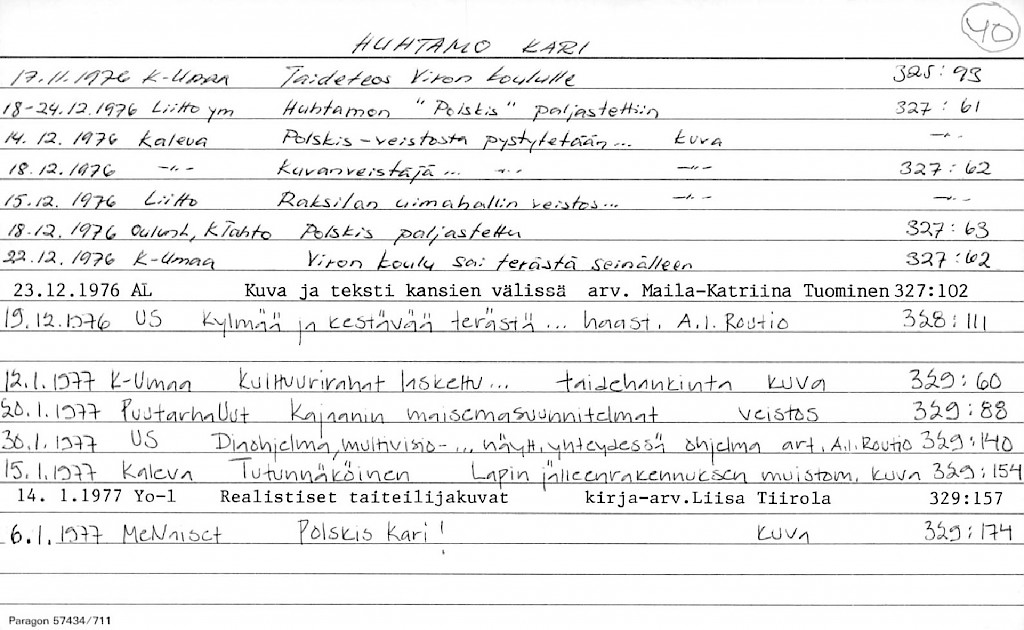 40
HUHTAMO KARI
17.11.1976 K-Umaa Taideteos Viron koululle 325:93
18-24.12.1976 Liitto ym Huhtamon "Polskis" paljastettiin 327:61
14.12.1976 Kaleva Polskis-veistosta pystytetään... kuva -"-
18.12.1976 -"- Kuvanveistäjä... -"- -"- 327:62
15.12.1976 Liitto Raksilan uimahallin veistos... -"- -"-
18.12.1976 Oulunl, KTahto Polskis paljastettu 327:63
22.12.1976 K-Umaa Viron koulu sai terästä seinälleen 327:62
23.12.1976 AL Kuva ja teksti kansien välissä arv. Maila-Katriina Tuominen 327:102
19.12.1976 US Kylmää ja kestävää terästä... haast. A.I. Routio 328:111
12.1.1977 K-Umaa Kulttuurirahat laskettu... taidehankinta kuva 329:60
20.1.1977 PuutarhaUut Kajaanin maisemasuunnitelmat veistos 329:88
30.1.1977 US Diaohjelma, multivisio-... näytt. yhteydessä ohjelma art. A.I. Routio 329:140
15.1.1977 Kaleva Tutunnäköinen Lapin jälleenrakennuksen muistom. kuva 329:154
14. 1.1977 Yo-l Realistiset taiteilijakuvat kirja-arv.Liisa Tiirola 329:157
6.1.1977 MeNaiset Polskis Kari! kuva 329:174
Paragon 57434/711